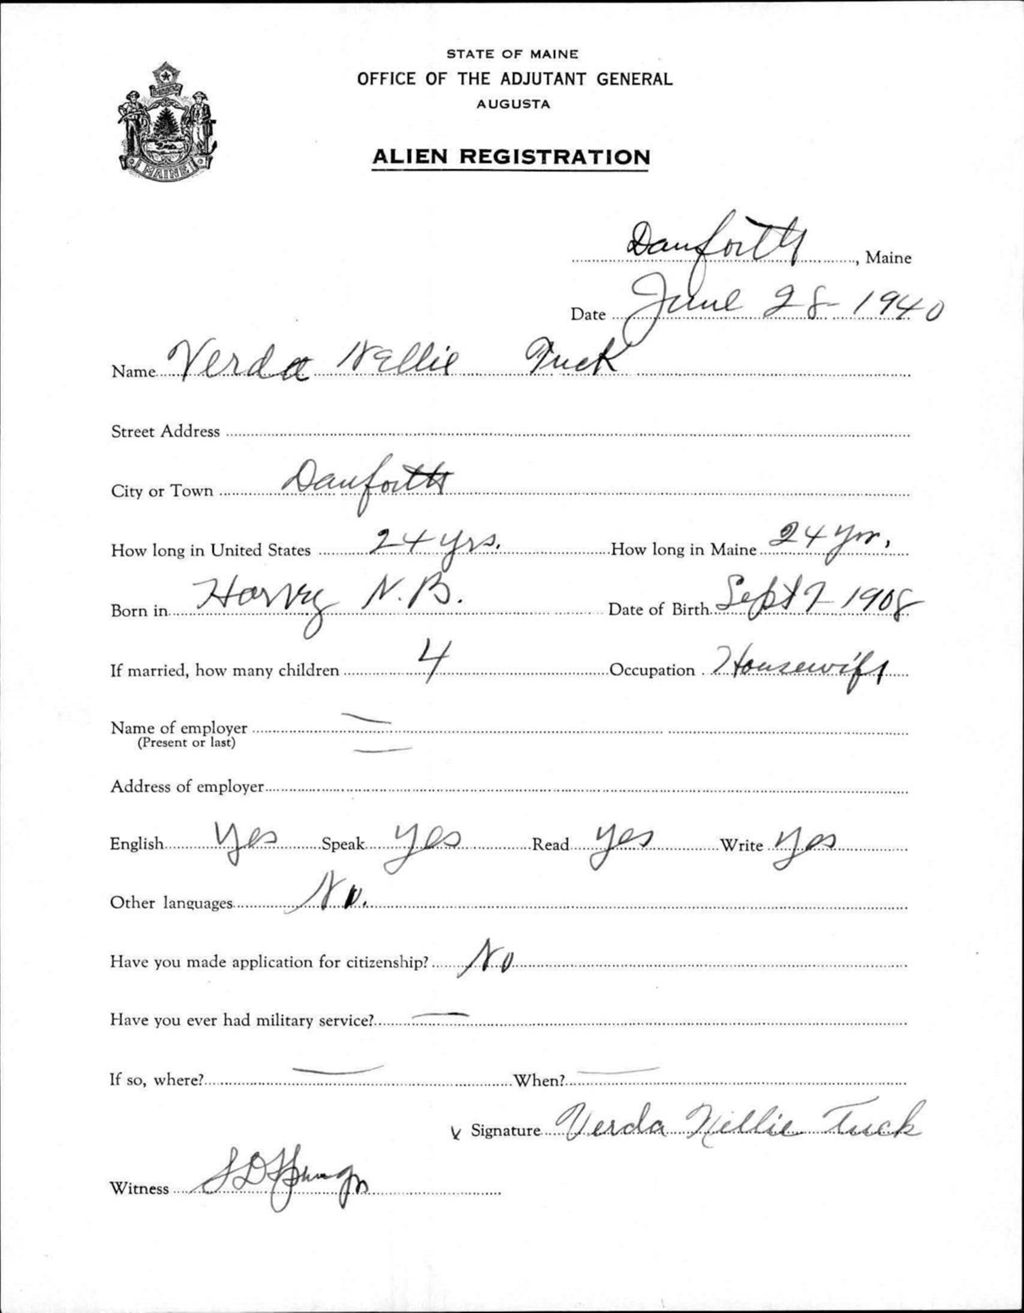 STATE OF MAINE
OFFICE OF THE ADJUTANT GENERAL
AUGUSTA
ALIEN REGISTRATION
MAINE
Danforth, Maine
Date June 28 1940
Name Verda Nellie Tuck
Street Address
City or Town Danforth
How long in United States 24 yrs. How long in Maine 24 yrs.
Born in Harvey N.B. Date of Birth Sept 7 1908
If married, how many children 4 Occupation Housewife
Name of employer
(Present or last)
Address of employer
English Yes Speak Yes Read Yes Write Yes
Other languages No.
Have you made application for citizenship? No
Have you ever had military service? —
If so, where? — When? —
Signature Verda Nellie Tuck
Witness